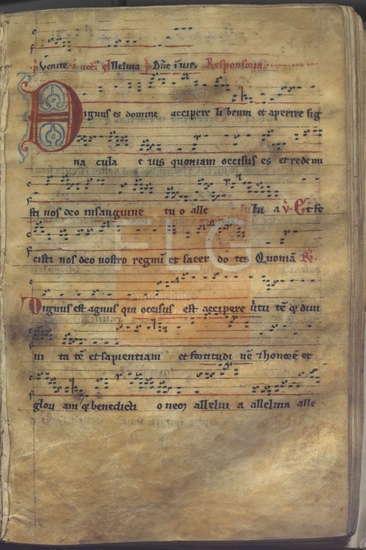 Venite Alleluia Responsoria
Dignus es domine accipere librum et aperire sig
na cula e ius quoniam occisus es et redemi
sti nos deo in sanguine tu o alle lu ia V. Et fe
cisti nos deo nostro regnum et sacer do tes Quoniam
Dignus est agnus qui occisus est accipere virtu tem
ni ta tem et sapientiam et fortitudi nem honorem et
glori am benedicti onem alleluia alleluia alle
FLC